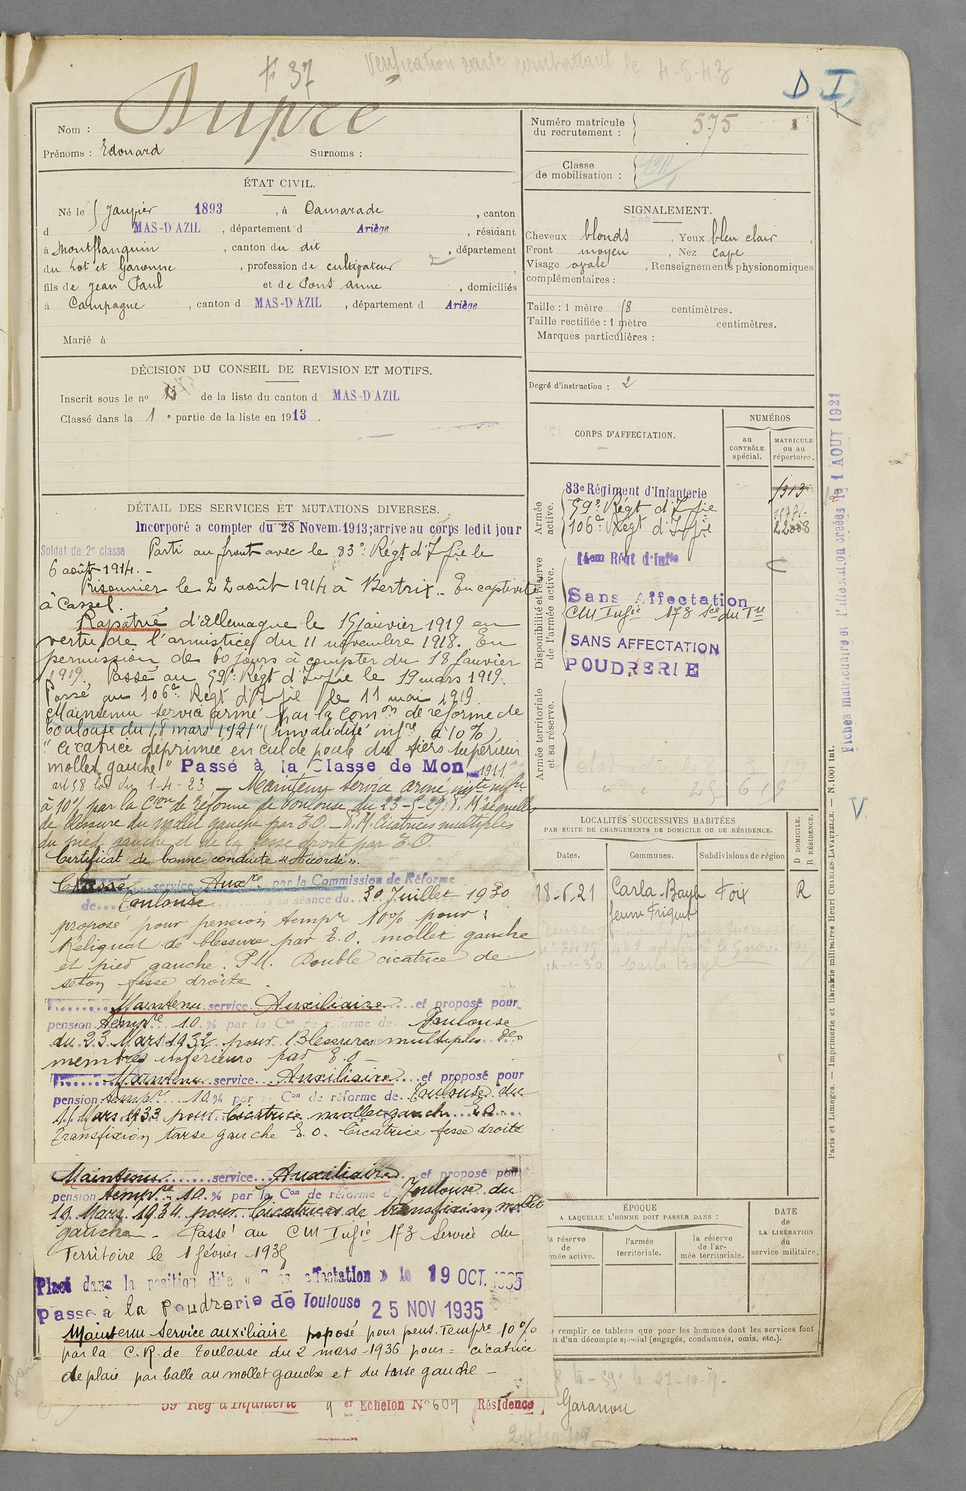 # 37
Verification carte combattant le 4-5-43
D I
Nom : Dupré
Prénoms : Edouard Surnoms :
Numéro matricule du recrutement : 575
Classe de mobilisation : 1911
ÉTAT CIVIL.
Né le 5 Janvier 1893, à Camarade, canton
d MAS-D'AZIL, département d Ariège, résidant
à Montflanquin, canton du dit, département
du Lot et Garonne, profession de cultivateur
fils de Jean Paul et de Pons Anne, domiciliés
à Campagne, canton d MAS-D'AZIL, département d Ariège
Marié à
SIGNALEMENT.
Cheveux blonds, Yeux bleu clair,
Front moyen, Nez cave
Visage ovale, Renseignements physionomiques
complémentaires :
Taille : 1 mètre 58 centimètres.
Taille rectifiée : 1 mètre centimètres.
Marques particulières :
Degré d'instruction : 2
DÉCISION DU CONSEIL DE REVISION ET MOTIFS.
Inscrit sous le n° 13 de la liste du canton d MAS-D'AZIL
Classé dans la 1e partie de la liste en 1913.
DÉTAIL DES SERVICES ET MUTATIONS DIVERSES.
Incorporé a compter du 28 Novem. 1913; arrive au corps ledit jour
Soldat de 2e classe Parti au front avec le 83e Régt d'Infie le
6 août 1914. -
Prisonnier le 22 août 1914 à Bertrix. En captivité
à Cassel.
Rapatrié d'Allemagne le 15 janvier 1919 en
vertu de l'armistice du 11 novembre 1918. En
permission de 60 jours à compter du 18 Janvier
1919. Passé au 59e Régt d'Infie le 19 mars 1919.
Passé au 106e Régt d'Infie le 11 mai 1919
Maintenu service armé par la Comon de réforme de
Toulouse du 18 mars 1921 (invalidité infre à 10%)
"Cicatrice déprimée en cul de poule du tiers supérieur
mollet gauche" Passé à la Classe de Mon 1911
art 58 loi du 1-4-23 - Maintenu service armé, invté infre
à 10% par la Cion de réforme de Toulouse du 23-5-29. P. M. séquelles
de blessure du mollet gauche par E.O. - P.M. Cicatrices multiples
du pied gauche et de la fesse droite par E.O.
Certificat de bonne conduite "Accordé".
Classé service Auxre par la Commission de Réforme
de Toulouse dans sa séance du 30 Juillet 1930
proposé pour pension tempre 10% pour :
Reliquat de blessure par E.O. mollet gauche
et pied gauche. P.M. Double cicatrice de
séton fesse droite.
Maintenu service Auxiliaire et proposé pour
pension tempre 10 % par la Con de réforme de Toulouse
du 23 Mars 1932 pour Blessures multiples des
membres inférieurs par E.O. -
Maintenu service Auxiliaire et proposé pour
pension tempre 10 % par la Con de réforme de Toulouse du
11 Mars 1933 pour Cicatrice mollet gauch. E.O.
Transfixion tarse gauche E.O. Cicatrice fesse droite
Maintenu service Auxiliaire et proposé pour
pension tempre 10 % par la Con de réforme d Toulouse du
19 Mars 1934 pour Cicatrices de transfixion mollet
gauche - Passé au CM Infie 173 Service du
Territoire le 1 février 1935
Placé dans la position dite « Sans affectation » le 19 OCT. 1935
Passé à la Poudrerie de Toulouse 25 NOV 1935
Maintenu Service auxiliaire proposé pour pens. Tempre 10%
par la C.R. de Toulouse du 2 mars 1936 pour = cicatrice
de plaie par balle au mollet gauche et du tarse gauche -
59e Rég d'Infanterie 1er Echelon N° 609 Résidence, Garanou
CORPS D'AFFECTATION.
NUMÉROS
au CONTRÔLE spécial.
MATRICULE ou au répertoire.
Armée active.
83e Régiment d'Infanterie 1313
59e Régt d'Infie
106e Régt d'Infie 22008
Disponibilité et réserve de l'armée active.
14em Régt d'Infie
Sans Affectation
CM Infie 173 Sce du Tre
SANS AFFECTATION
POUDRERIE
Armée territoriale et sa réserve.
LOCALITÉS SUCCESSIVES HABITÉES
PAR SUITE DE CHANGEMENTS DE DOMICILE OU DE RÉSIDENCE.
Dates. Communes. Subdivisions de région D DOMICILE. R RÉSIDENCE.
18-6-21 Carla-Bayle Foix R
ÉPOQUE
A LAQUELLE L'HOMME DOIT PASSER DANS :
la réserve de l'armée active.
l'armée territoriale.
la réserve de l'armée territoriale.
DATE de LA LIBÉRATION du service militaire.
remplir ce tableau que pour les hommes dont les services font
l'objet d'un décompte spécial (engagés, condamnés, omis, etc.).
Fiches matriculaire et d'affectation créées le 1 AOUT 1921
V
Paris et Limoges. - Imprimerie et librairie militaires Henri CHARLES-LAVAUZELLE. - N. 1001 int.